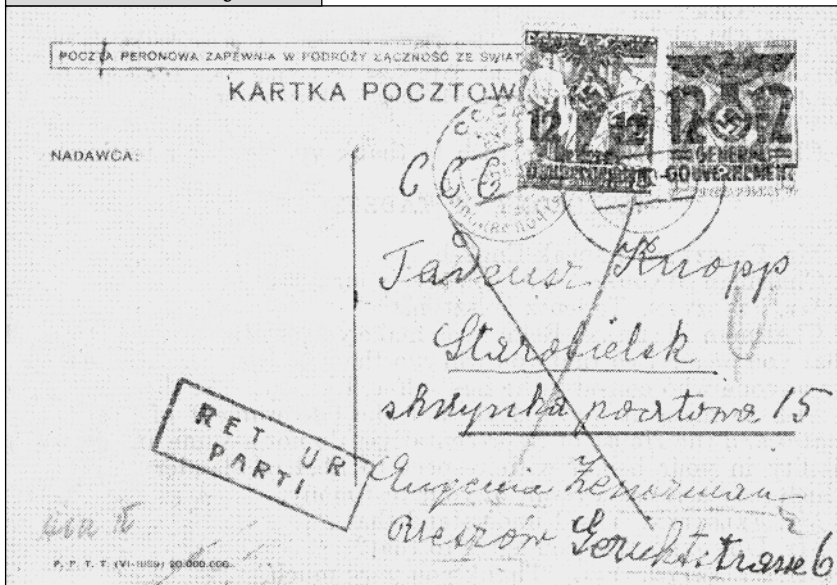 POCZTA PERONOWA ZAPEWNIA W PODRÓŻY ŁĄCZNOŚĆ ZE ŚWIAT
KARTKA POCZTOW
12 12
12 12
GENERAL-
GOUVERNEMENT
NADAWCA:
CCC
Tadeusz Knopp
Starobielsk
skrzynka pocztowa 15
RET UR
PARTI
Eugenia
Rzeszów Gerichtstrasse 6
P. P. T. T. (VI-1939) 20.000.000.